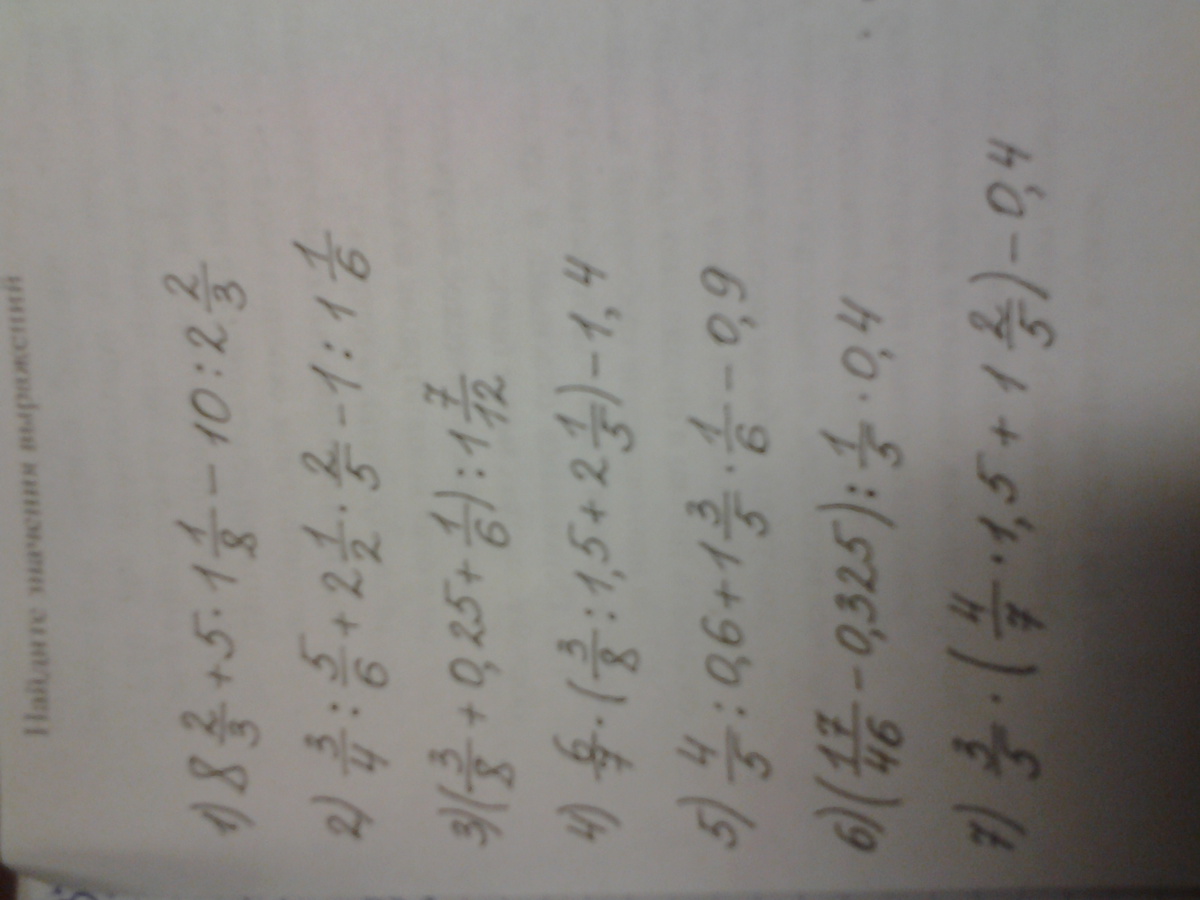 Найдите значения выражений
1) 8 2/3 + 5 · 1 1/8 − 10 : 2 2/3
2) 3/4 : 5/6 + 2 1/2 · 2/5 − 1 : 1 1/6
3) (3/8 + 0,25 + 1/6) : 1 7/12
4) 6/7 · (3/8 : 1,5 + 2 1/5) − 1,4
5) 4/5 : 0,6 + 1 3/5 · 1/6 − 0,9
6) (17/46 − 0,325) : 1/5 · 0,4
7) 3/5 · (4/7 · 1,5 + 1 2/5) − 0,4